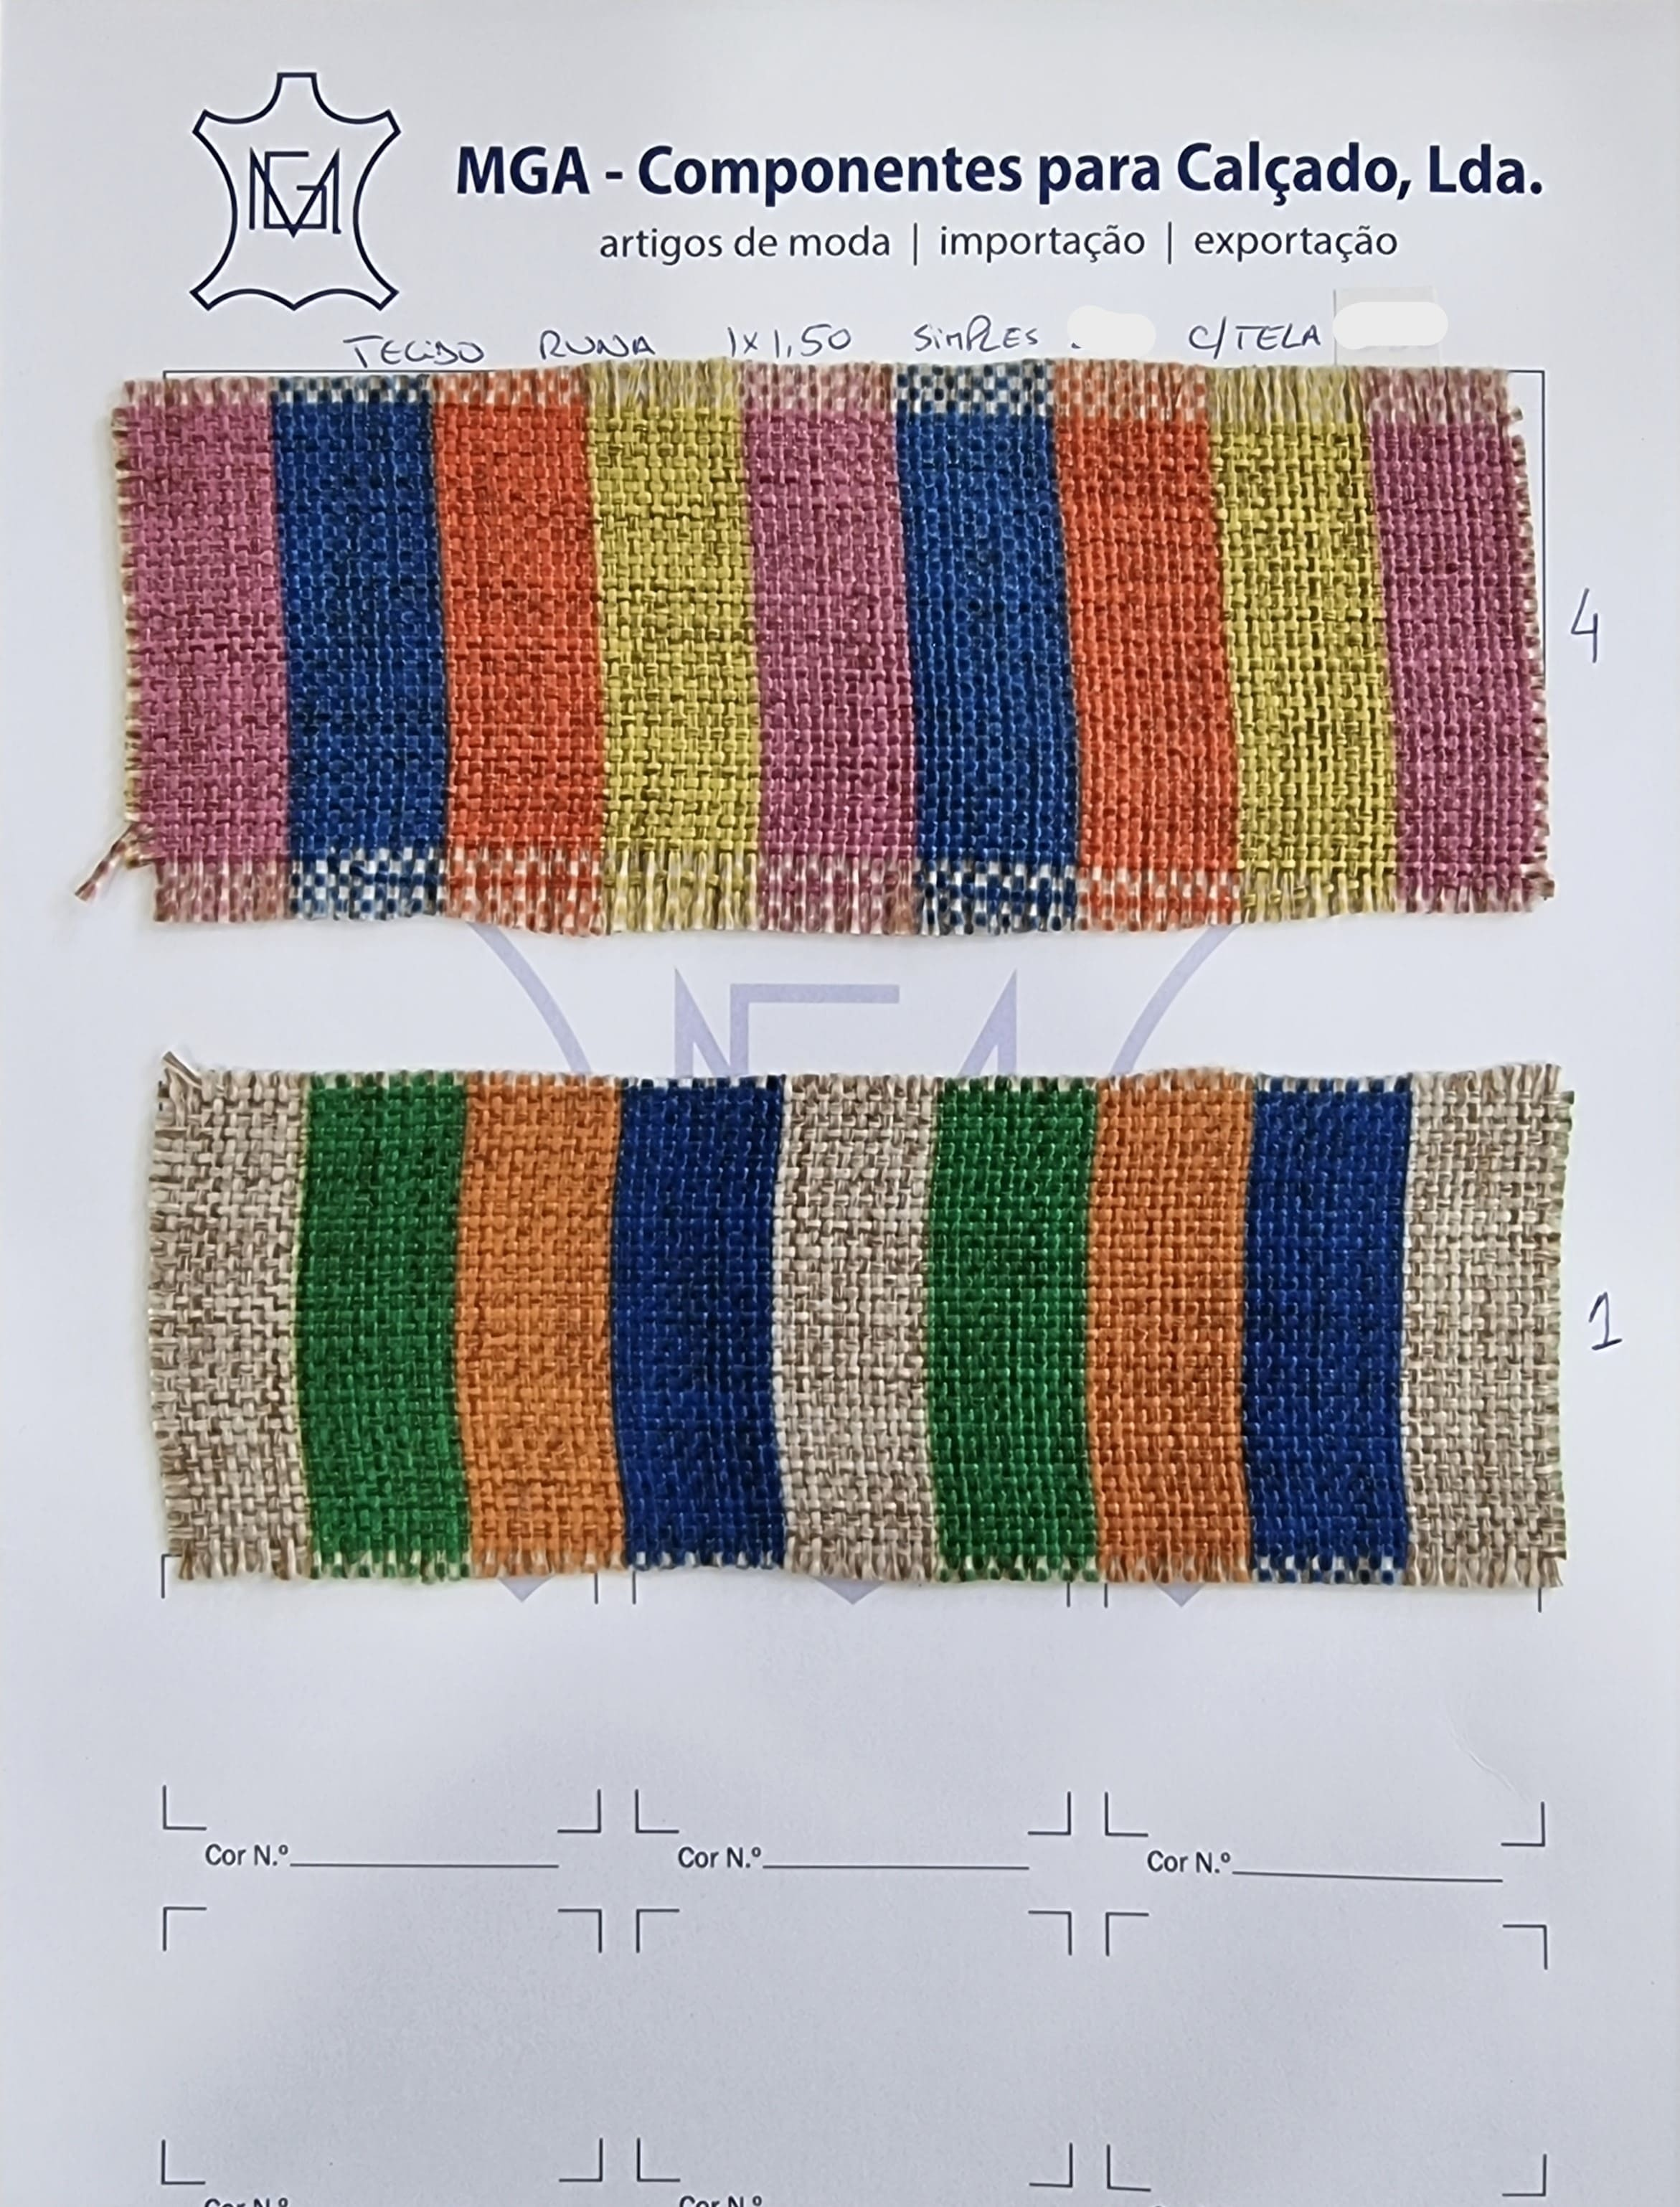 MGA
MGA - Componentes para Calçado, Lda.
artigos de moda | importação | exportação
TECIDO RUNA 1x1,50 SIMPLES . C/TELA
4
1
Cor N.º Cor N.º Cor N.º
Cor N.º Cor N.º